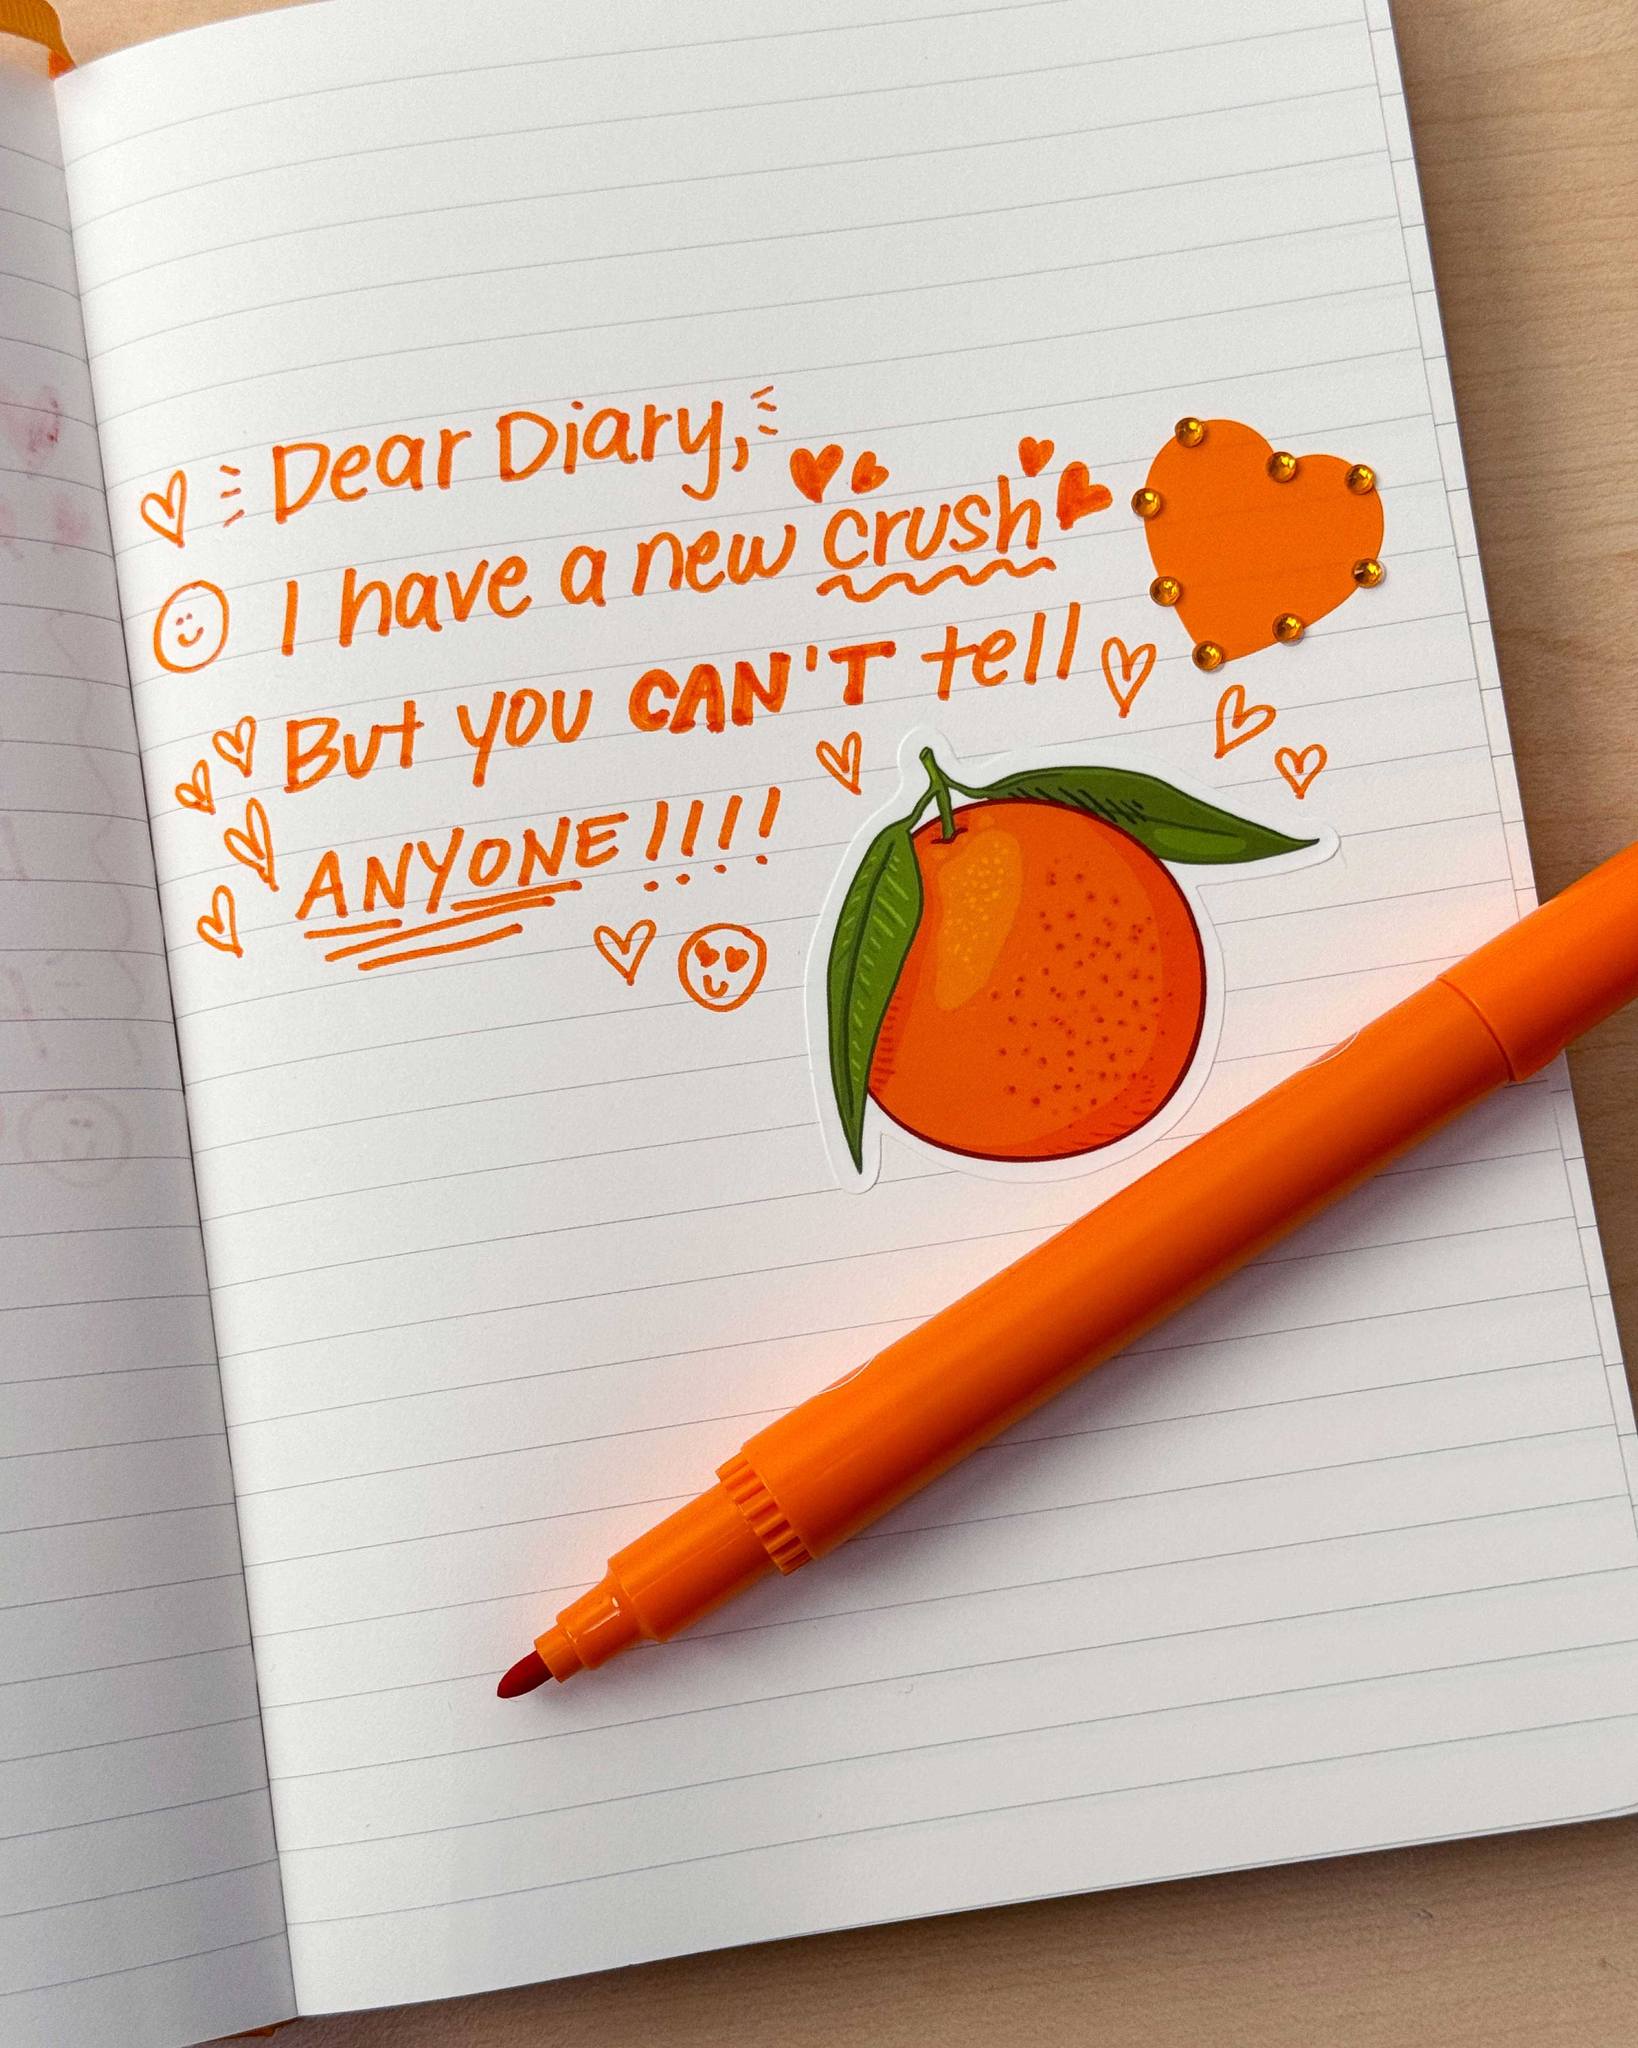 Dear Diary,
I have a new crush
But you CAN'T tell
ANYONE!!!!